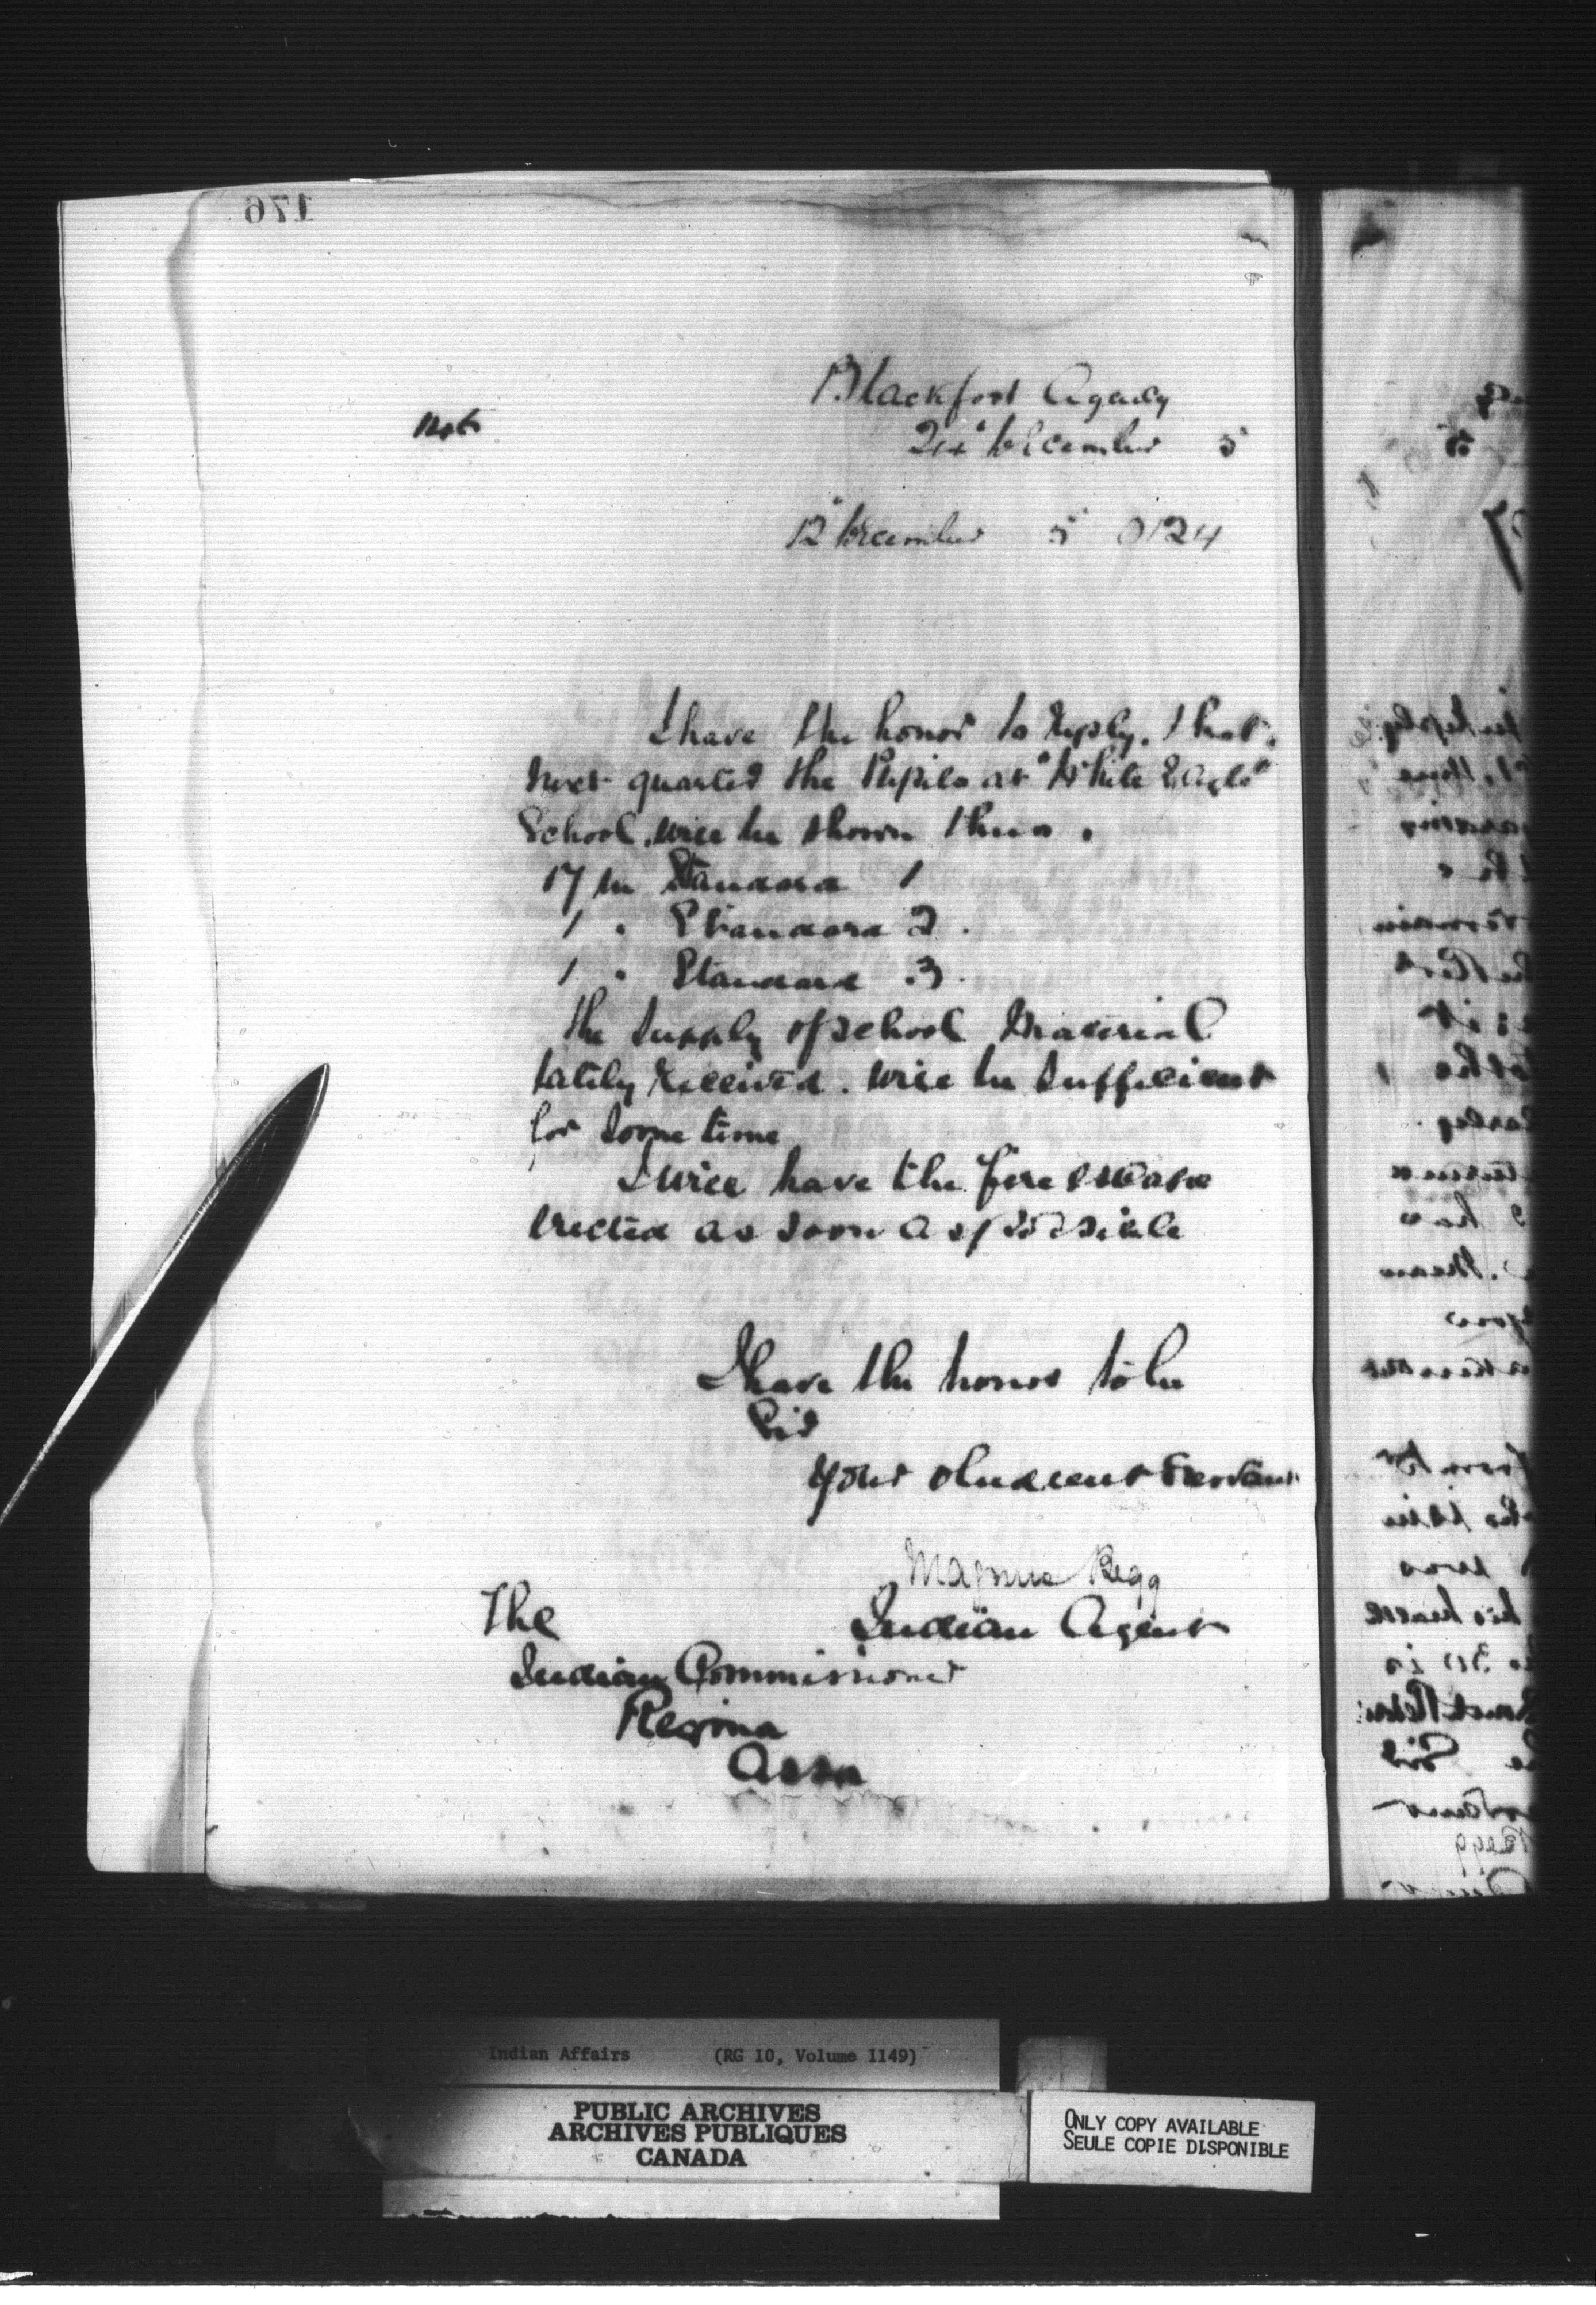 176
Blackfoot Agency
Note
24" December 5
12" December 5 0124
I have the honor to reply. that.
next quarter the Pupils at "White Eagle"
School. will be shown thus.
17 in Standard 1
1 " Standard 2.
1 " Standard 3.
The supply of school material
lately received. will be sufficient
for some time
I will have the fire escape
erected as soon as possible
I have the honor to be
Sir
Your obedient Servant
Magnus Begg
Indian Agent
The
Indian Commissioner
Regina
Assa
Indian Affairs (RG 10, Volume 1149)
PUBLIC ARCHIVES
ARCHIVES PUBLIQUES
CANADA
ONLY COPY AVAILABLE
SEULE COPIE DISPONIBLE